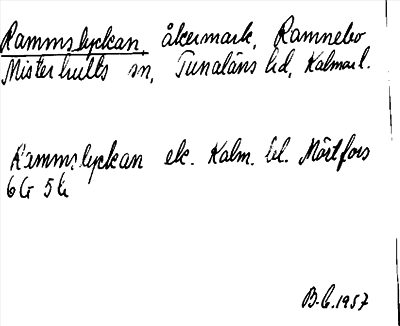 Rammslyckan, åkermark, Ramnebo
Misterhults sn, Tunaläns hd, Kalmar l.
Rammslyckan ek. Kalm. bl. Mörtfors
6G 5b
B.C. 1957